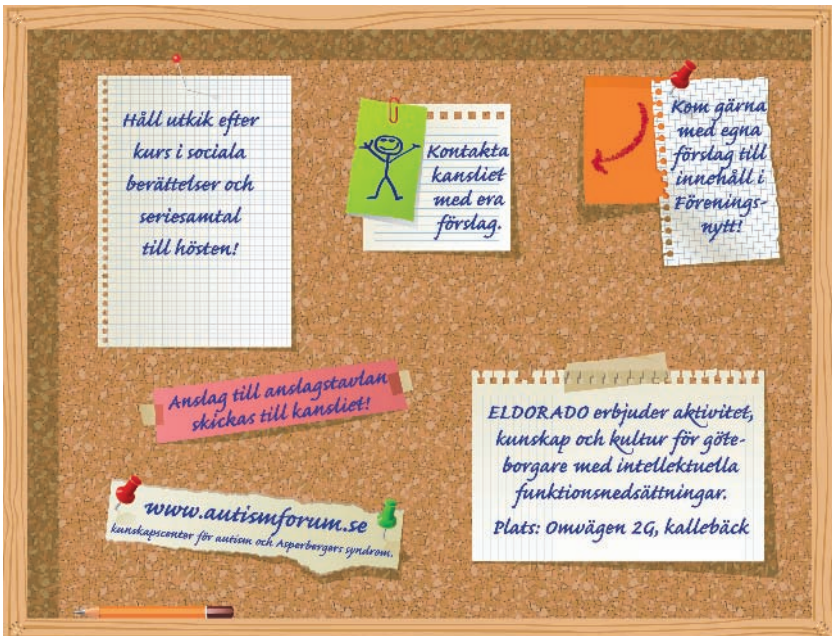 Håll utkik efter
kurs i sociala
berättelser och
seriesamtal
till hösten!
Kontakta
kansliet
med era
förslag.
Kom gärna
med egna
förslag till
innehåll i
Förenings-
nytt!
Anslag till anslagstavlan
skickas till kansliet!
ELDORADO erbjuder aktivitet,
kunskap och kultur för göte-
borgare med intellektuella
funktionsnedsättningar.
Plats: Omvägen 2G, kallebäck
www.autismforum.se
kunskapscenter för autism och Aspbergers syndrom.